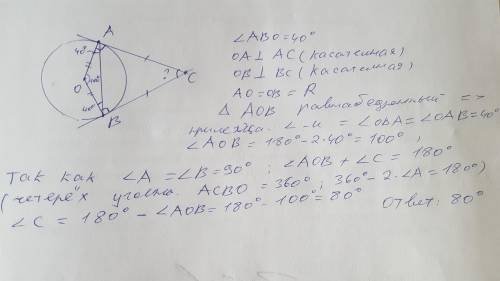 A
40°
O
100°
40°
B
?
C
∠ABO = 40°
OA ⊥ AC (касательная)
OB ⊥ BC (касательная)
AO = OB = R
△ AOB равнобедренный =>
∠-и = ∠OBA = ∠OAB = 40°
∠AOB = 180° - 2·40° = 100°,
Так как ∠A = ∠B = 90° ; ∠AOB + ∠C = 180°
(четырёх уголка. ACBO = 360° ; 360° - 2·∠A = 180°)
∠C = 180° - ∠AOB = 180° - 100° = 80° Ответ: 80°